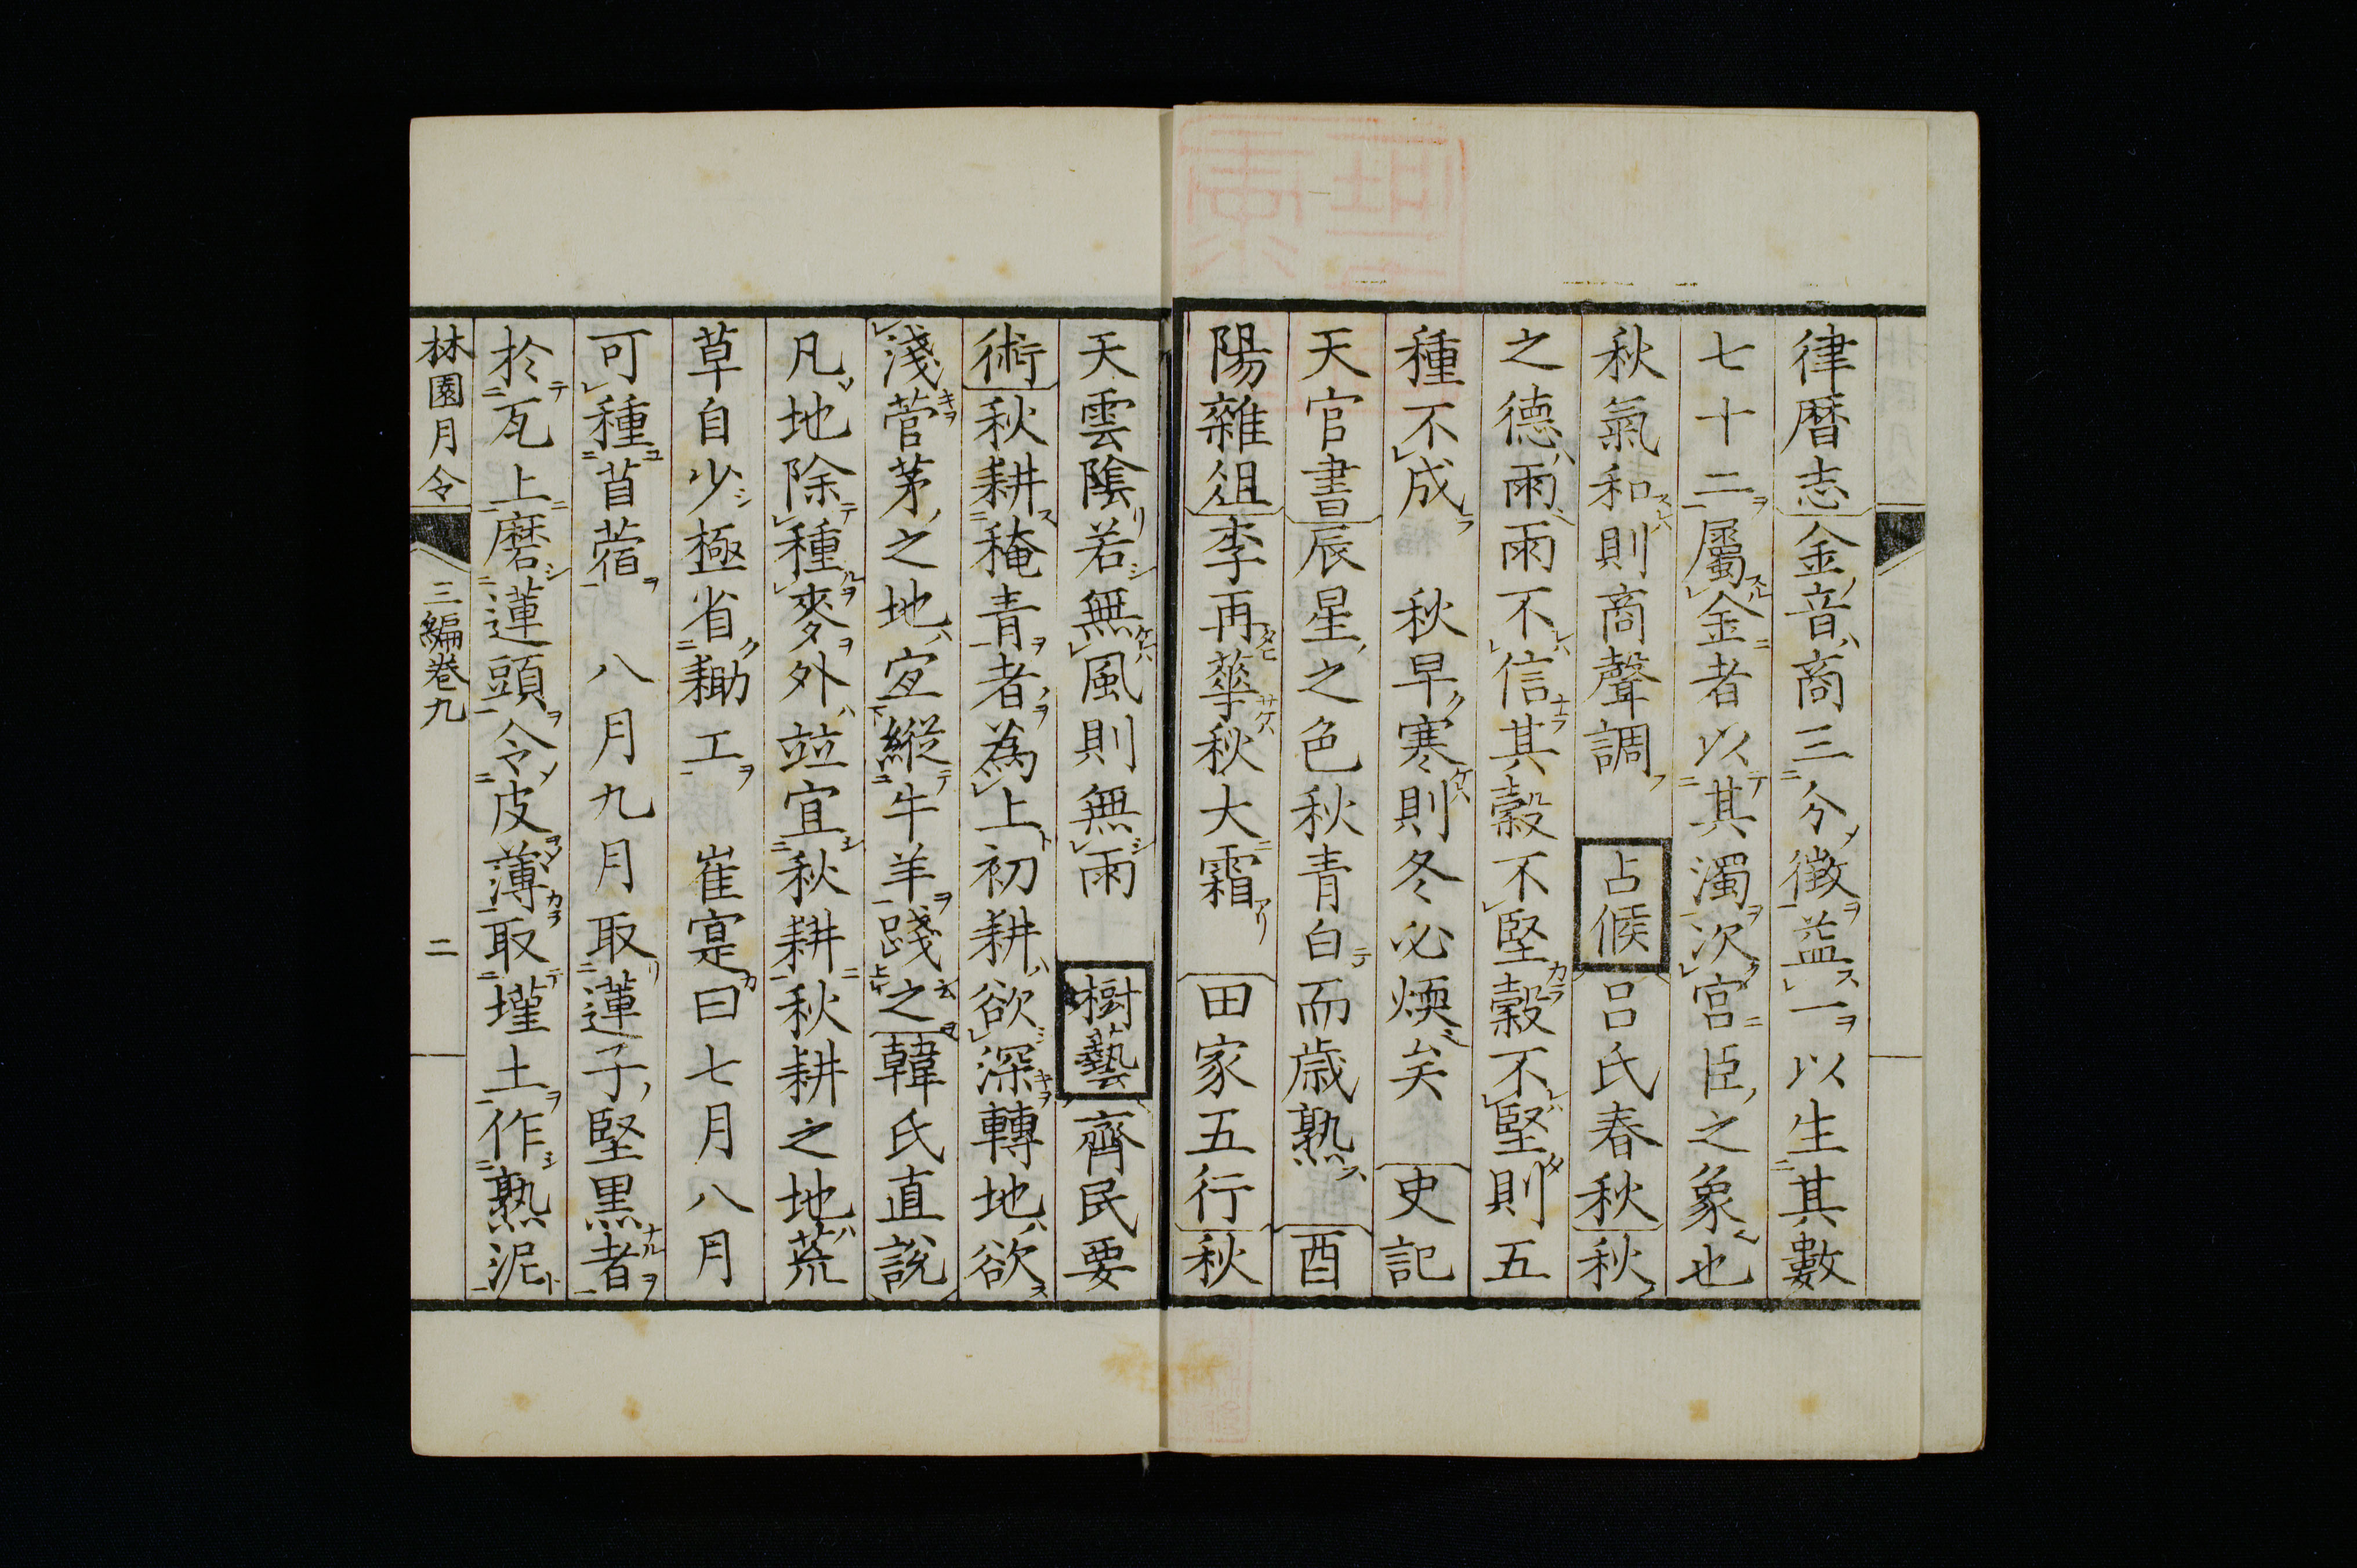 律暦志金音商三分徴益一以生其數
七十二屬金者以其濁次宮臣之象也
秋氣和則商聲調　占候　呂氏春秋秋
之德雨雨不信其穀不堅穀不堅則五
種不成　秋早寒則冬必煗矣　史記
天官書辰星之色秋青白而歳熟　酉
陽雜俎李再華秋大霜　田家五行秋
天雲陰若無風則無雨　樹藝　齊民要
術秋耕䅖青者為上初耕欲深轉地欲
淺菅茅之地宜縦牛羊踐之韓氏直說
凡地除種麥外竝宜秋耕秋耕之地荒
草自少極省鋤工　崔寔曰七月八月
可種苜蓿　八月九月取蓮子堅黒者
於瓦上磨蓮頭令皮薄取墐土作熟泥
林園月令　三編巻九　二